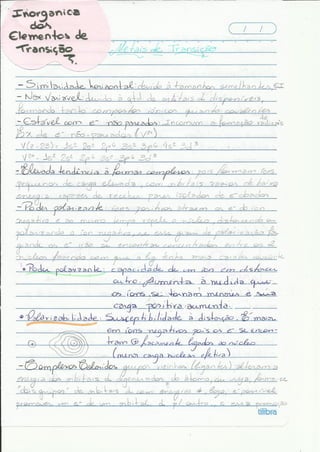 Inorgânica
dos
Elementos de
Transição
Metais de Transição
- Similaridade horizontal: devido à tamanhos semelhantes, EI
- Nox variável devido à qtd de orbitais d disponíveis,
formando tanto compostos iônicos quanto covalentes.
- Estável com e⁻ não pareados:
Ex de e⁻ não-pareados (V
- Elevada tendência a formar complexos, pois formam íons
pequenos de carga elevada, com orbitais vazios de baixa
energia capazes de receber pares isolados de e⁻
- Poder polarizante: íons positivos atraem os e⁻ do íon
negativo e ao mesmo tempo repele o núcleo, distorcendo ou
polarizando o íon negativo, e esse grau de polarização for
grande os e⁻ vão se encontrar concentrados entre os 2
núcleos, fazendo com que a lig. tenha maior caráter covalente
• Poder polarizante: capacidade de um íon em distorcer
outro. Aumenta à medida que
os íons se tornam menores e sua
carga positiva aumenta.
• Polarizabilidade: Susceptibilidade à distorção. É maior
em íons negativos pois os e⁻ se encon-
tram fracamente ligados ao núcleo
(menor carga nuclear efetiva)
- Complexos Coloridos grupos vizinhos (ligantes) alteram a
energia dos orbitais d, do átomo, ou seja, forma-se
"dois grupos" de orbitais d com energias ≠. Logo, é possível
promover um e⁻ de um orbital d p/ outro, e essa promoção
tilibra